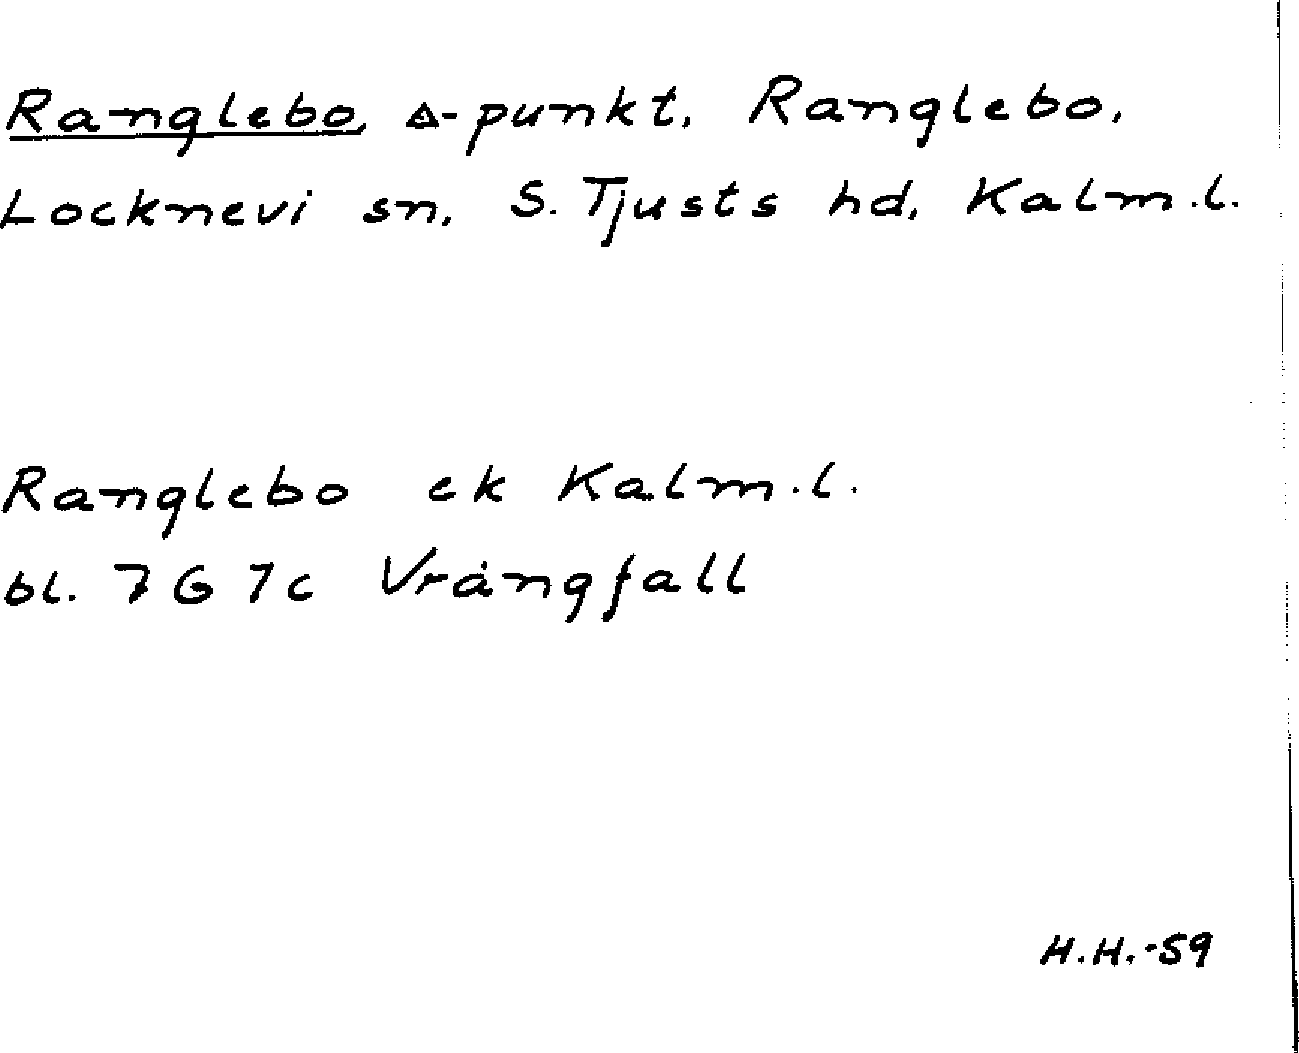 Ranglebo, △-punkt, Ranglebo,
Locknevi sn, S. Tjusts hd, Kalm.l.
Ranglebo ek Kalm.l.
bl. 7 G 7c Vrångfall
H.H.-59